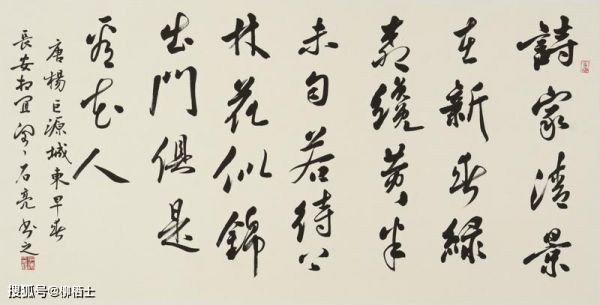 詩家清景
在新春綠
柳纔黃半
未匀若待上
林花似錦
出門俱是
看花人
唐楊巨源城東早春
長安相宜石亮書之
搜狐号@柳栖士